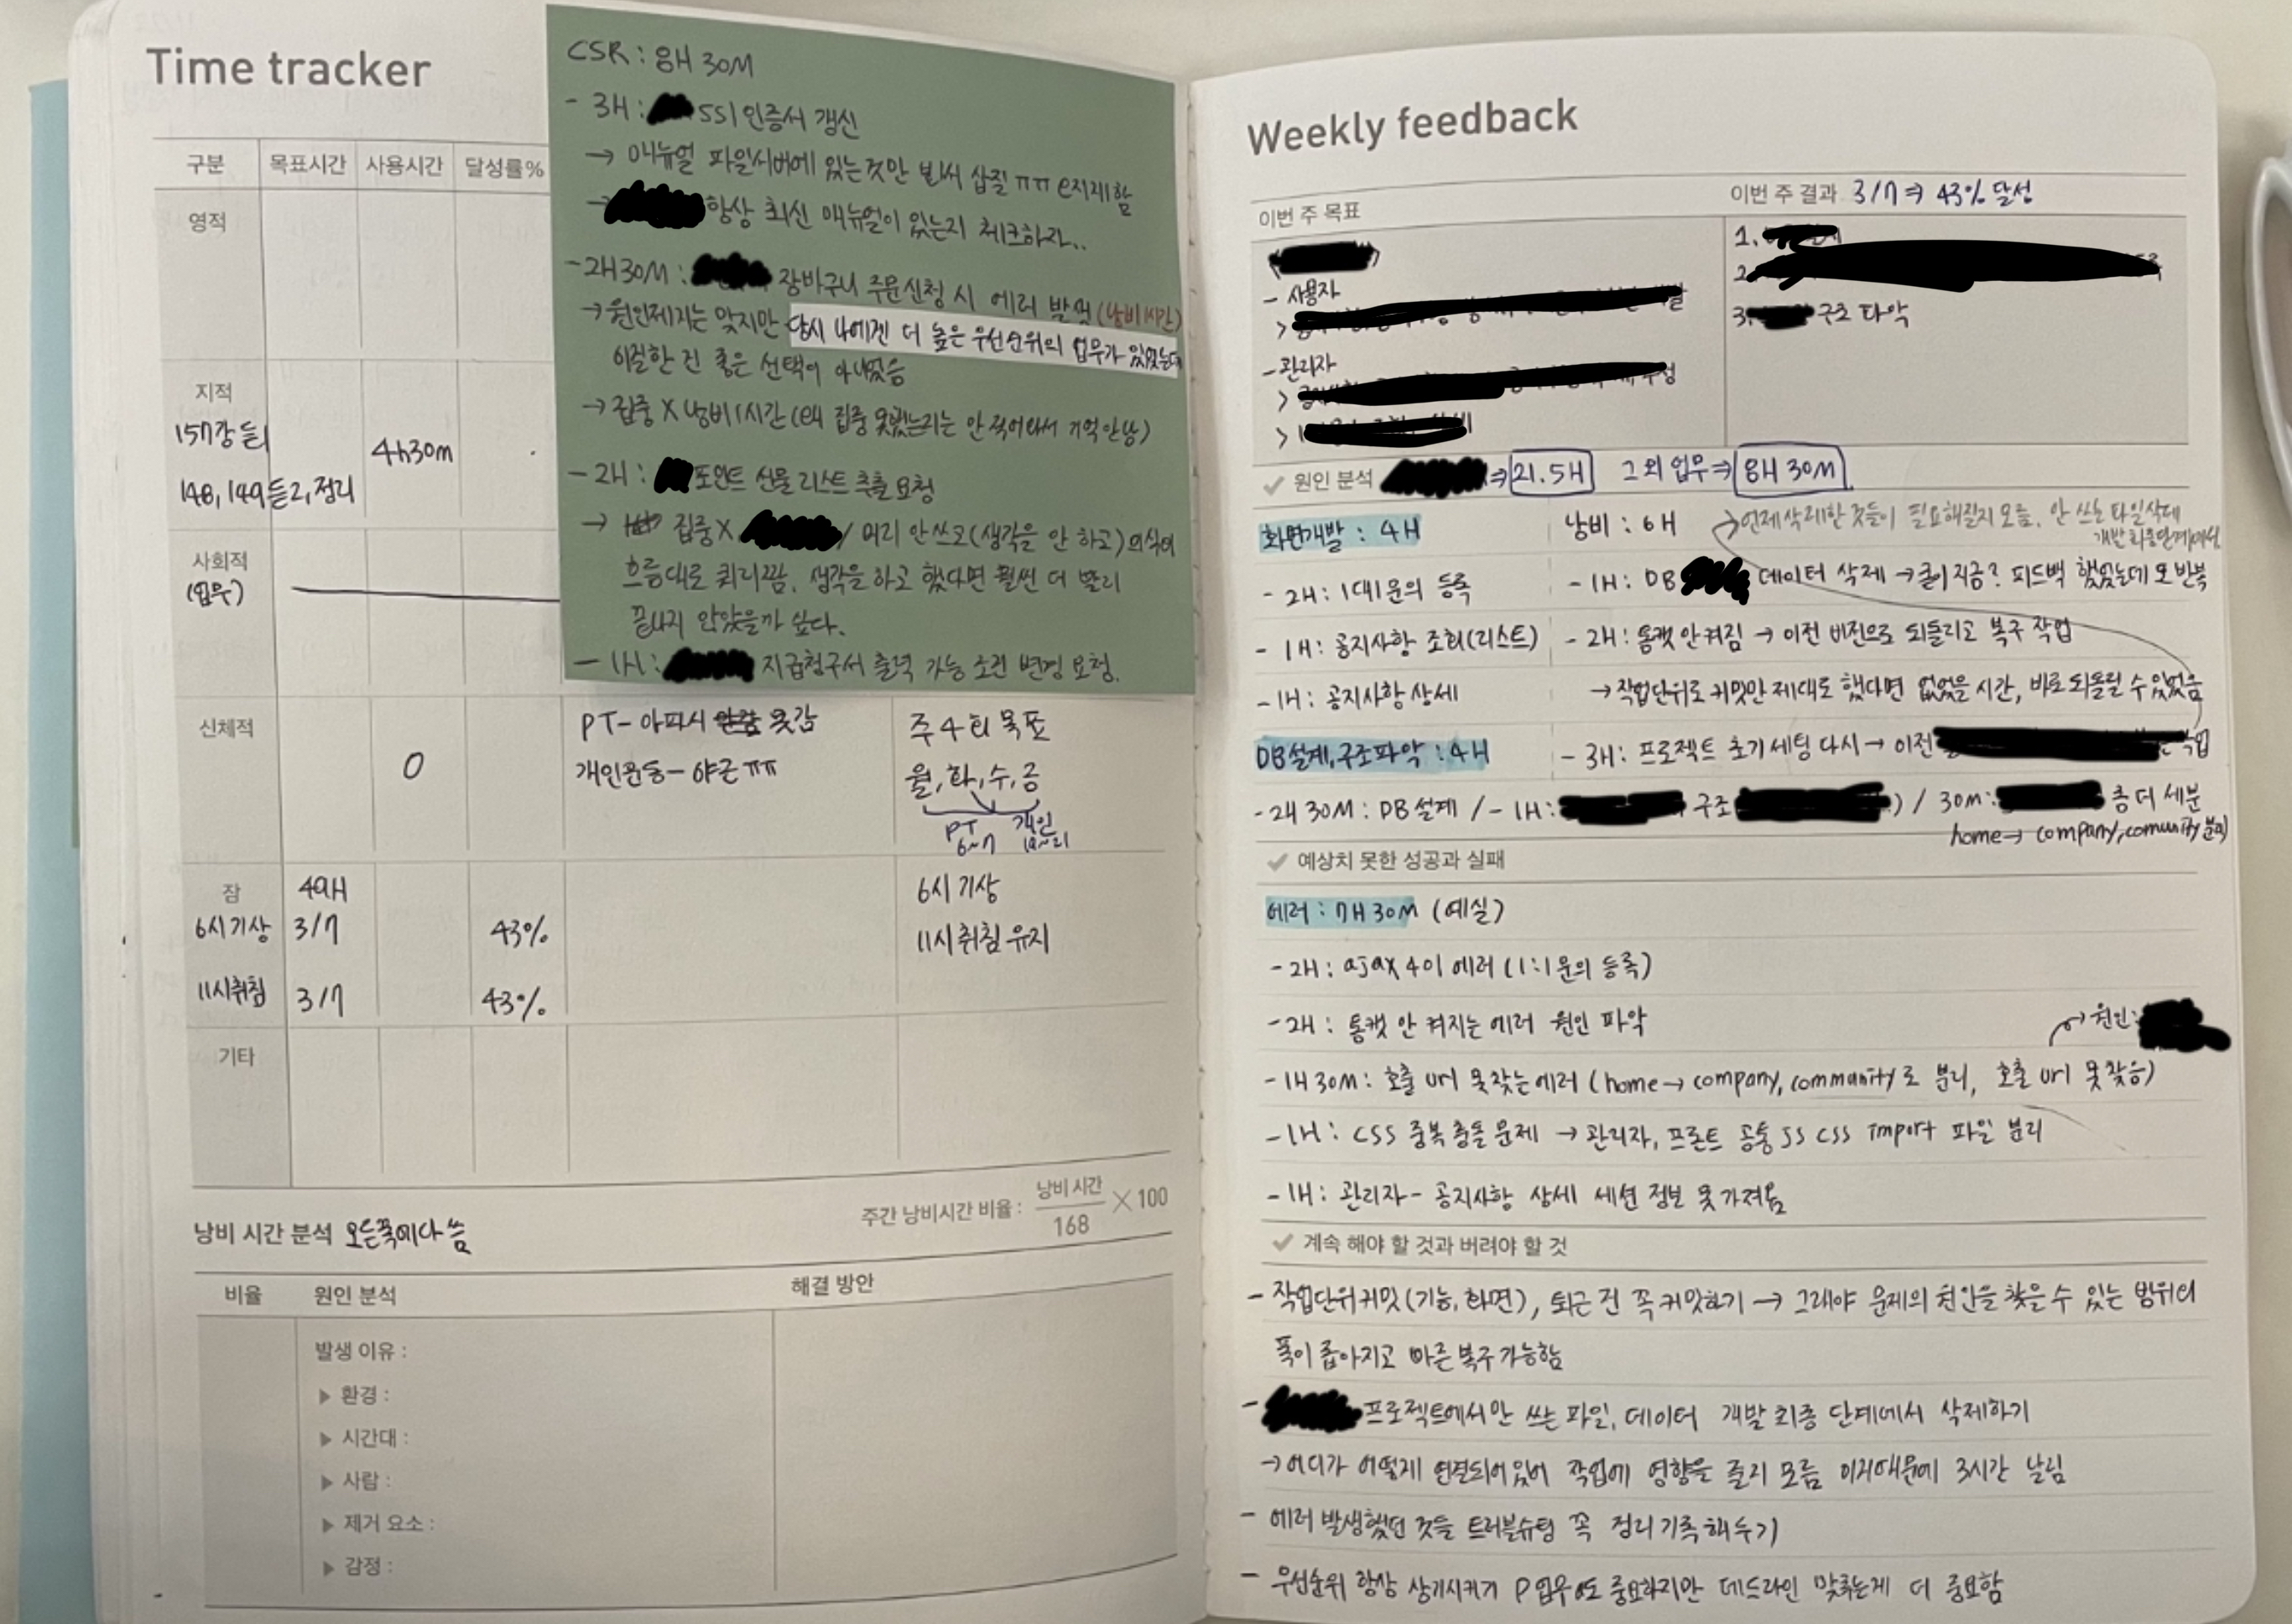 Time tracker
구분 목표시간 사용시간 달성률%
영적
지적
157강 듣1
148, 149듣2, 정리
4h30m
사회적
(업무)
신체적
0
PT- 아파서 못감
개인운동- 야근 ㅠㅠ
주 4회 목표
월, 화, 수, 금
PT 개인
6~7
잠 49H
6시 기상 3/7 43%
11시취침 3/7 43%
6시 기상
11시 취침 유지
기타
주간 낭비시간 비율 : 낭비 시간 / 168 × 100
낭비 시간 분석 오른쪽에다 씀
비율 원인 분석 해결 방안
발생 이유 :
▶ 환경 :
▶ 시간대 :
▶ 사람 :
▶ 제거 요소 :
▶ 감정 :
CSR : 8H 30M
- 3H : ssl 인증서 갱신
→ 매뉴얼 파일서버에 있는것만 봐서 삽질 ㅠㅠ
→ 항상 최신 매뉴얼이 있는지 체크하자..
- 2H 30M : 장바구니 주문신청 시 에러 발생 (낭비 1시간)
→ 원인제거는 맞지만 당시 나에겐 더 높은 우선순위의 업무가 있었는데
이걸한 건 좋은 선택이 아니었음
→ 집중 X 낭비 1시간 (왜 집중 못했는지는 안 적어놔서 기억안남)
- 2H : 포인트 선물 리스트 추출 요청
→ 집중 X / 머리 안쓰고(생각을 안 하고) 의식의
흐름대로 쿼리짬. 생각을 하고 했다면 훨씬 더 빨리
끝나지 않았을까 싶다.
- 1H : 지급청구서 출력 가능 조건 변경 요청.
Weekly feedback
이번 주 목표
이번 주 결과 3/7 ⇒ 43% 달성
- 사용자
>
- 관리자
>
>
1.
2.
3. 구조 파악
✓ 원인 분석 ⇒ 21.5H 그 외 업무 ⇒ 8H 30M
화면개발 : 4H
- 2H : 1대1 문의 등록
- 1H : 공지사항 조회(리스트)
- 1H : 공지사항 상세
DB설계, 구조파악 : 4H
- 2H 30M : DB 설계 / - 1H : 구조 ) / 30M : 좀 더 세분
home → company, comunity 분리)
낭비 : 6H
언제 삭제한 것들이 필요해질지 모름. 안 쓰는 파일삭제
- 1H : DB 데이터 삭제 → 굳이 지금? 피드백 했었는데 또 반복
- 2H : 톰캣 안켜짐 → 이전 버전으로 되돌리고 복구 작업
→ 작업단위로 커밋만 제대로 했다면 없었을 시간, 바로 되돌릴 수 있었음
- 3H : 프로젝트 초기 세팅 다시 → 이전 작업
✓ 예상치 못한 성공과 실패
에러 : 7H 30M (예실)
- 2H : ajax 401 에러 (1:1문의 등록)
- 2H : 톰캣 안 켜지는 에러 원인 파악
→ 원인:
- 1H 30M : 호출 url 못찾는에러 (home → company, community로 분리, 호출 url 못찾음)
- 1H : CSS 중복 충돌 문제 → 관리자, 프론트 공통 JS CSS import 파일 분리
- 1H : 관리자 - 공지사항 상세 세션 정보 못가져옴
✓ 계속 해야 할 것과 버려야 할 것
- 작업단위 커밋 (기능, 화면), 퇴근 전 꼭 커밋하기 → 그래야 문제의 원인을 찾을 수 있는 범위의
폭이 좁아지고 빠른 복구 가능함
- 프로젝트에서 안 쓰는 파일, 데이터 개발 최종 단계에서 삭제하기
→ 어디가 어떻게 연결되어 있어 작업에 영향을 줄지 모름 이거때문에 3시간 날림
- 에러 발생했던 것들 트러블슈팅 꼭 정리 기록 해두기
- 우선순위 항상 상기시키기 P업무도 중요하지만 데드라인 맞추는게 더 중요함